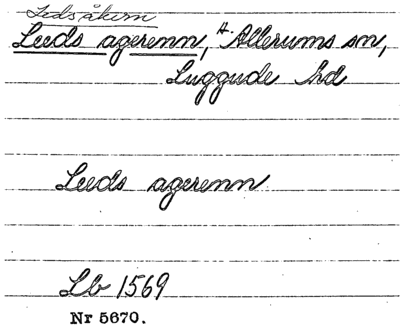 Leds åkern
Leeds agerenn, H. Allerums sn,
Luggude hd
Leeds agerenn
Lb 1569
Nr 5670.